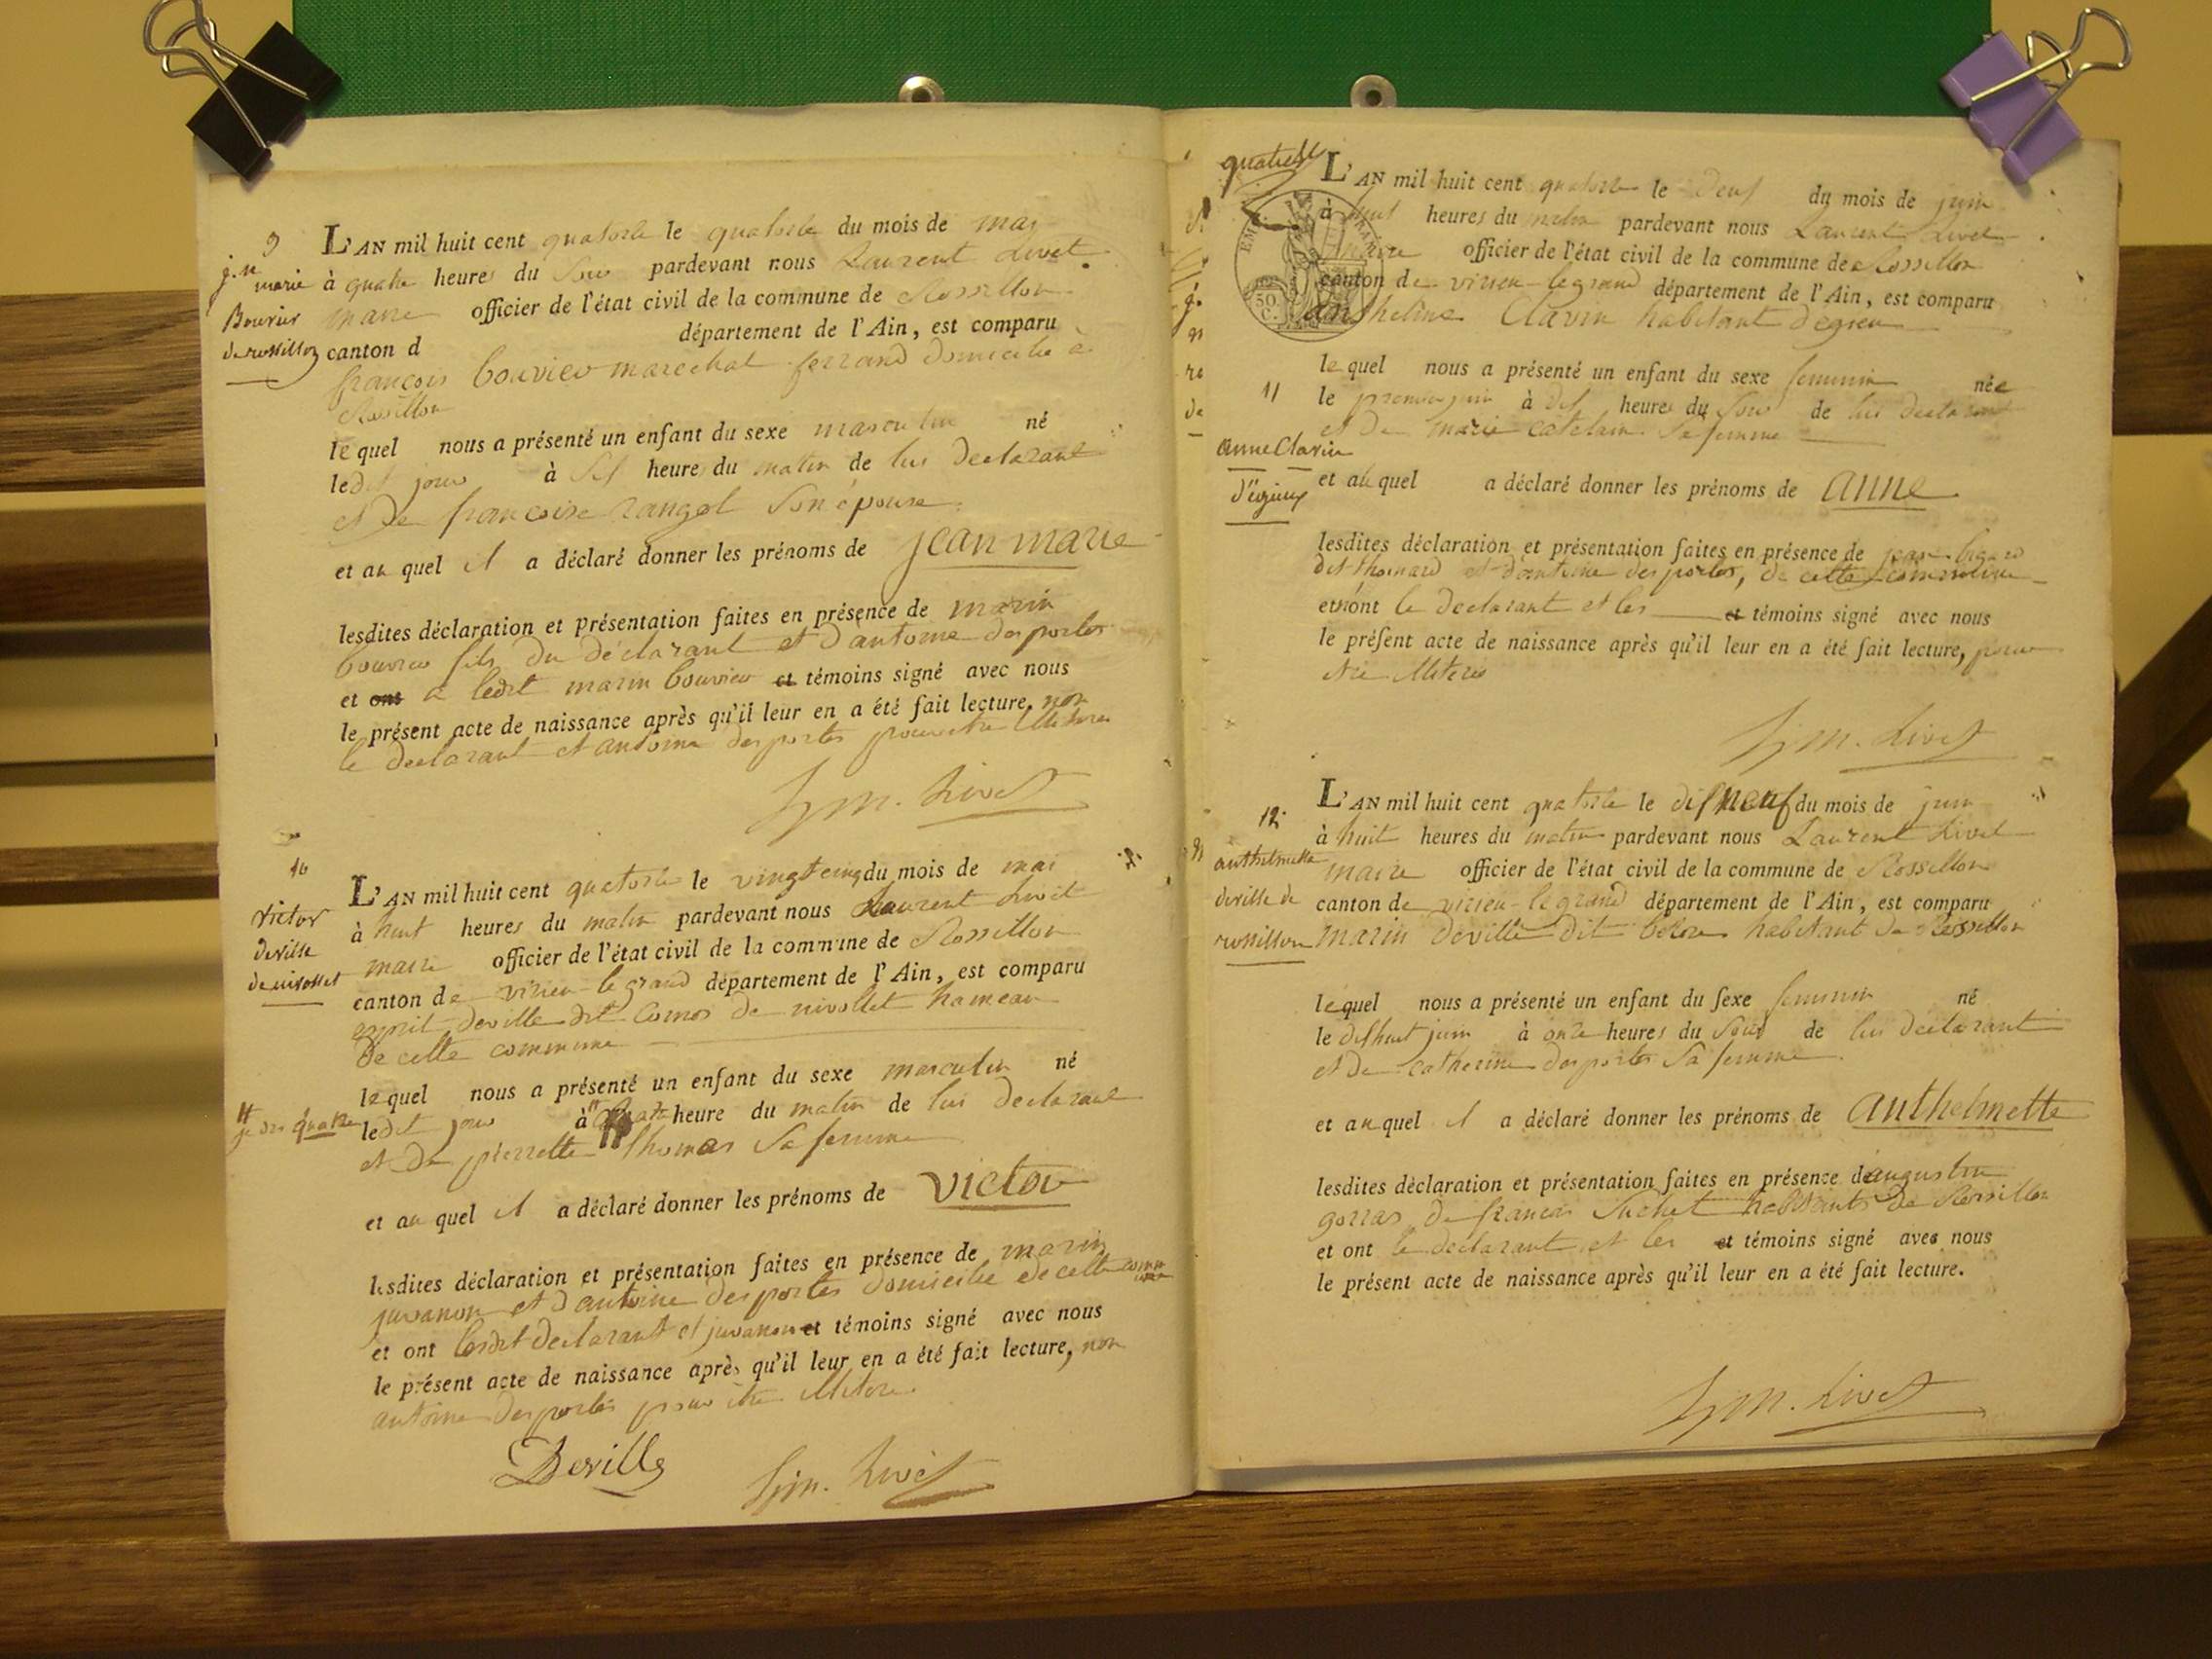 9
j.n marie
Bouvier
de rossillon
L'AN mil huit cent quatorze le quatorze du mois de mai
à quatre heures du soir pardevant nous Laurent Livet
maire officier de l'état civil de la commune de Rossillon
canton d département de l'Ain, est comparu
françois bouvier marechal ferrand domicilié à
Rossillon
lequel nous a présenté un enfant du sexe masculin né
ledit jour à six heures du matin de lui declarant
et de francoise son épouse
et au quel il a déclaré donner les prénoms de jean marie
lesdites déclaration et présentation faites en présence de marin
bouvier fils du déclarant et d'antoine desportes
et ont a ledit marin bouvier et témoins signé avec nous
le présent acte de naissance après qu'il leur en a été fait lecture, non
le declarant et antoine desportes pour etre
Livet
10
victor
deville
L'AN mil huit cent quatorze le vingtcinq du mois de mai
à huit heures du matin pardevant nous Laurent Livet
maire officier de l'état civil de la commune de Rossillon
canton de virieu-legrand département de l'Ain, est comparu
esprit deville dit de nivollet hameau
de cette commune
lequel nous a présenté un enfant du sexe masculin né
ledit jour à heure du matin de lui declarant
et de pierrette thomas sa femme
et au quel il a déclaré donner les prénoms de victor
lesdites déclaration et présentation faites en présence de marin
juvanon et d'antoine desportes domicilié de cette commune
et ont lesdit declarant et juvanon et témoins signé avec nous
le présent acte de naissance après qu'il leur en a été fait lecture, non
antoine desportes pour être
Deville
Livet
quatre
L'AN mil huit cent quatorze le deux du mois de juin
à huit heures du matin pardevant nous Laurent Livet
maire officier de l'état civil de la commune de Rossillon
canton de virieu-legrand département de l'Ain, est comparu
50.
C.
anthelme Clavin habitant d'egieu
11
anne Clavin
d'égieux
lequel nous a présenté un enfant du sexe feminin née
le premier juin à dix heures du soir de lui declarant
et de marie catelain sa femme
et au quel a déclaré donner les prénoms de anne
lesdites déclaration et présentation faites en présence de jean
dit thomard et d'antoine desportes, de cette commune
et n'ont le declarant et les et témoins signé avec nous
le présent acte de naissance après qu'il leur en a été fait lecture, pour
Livet
12
anthelmette
deville de
rossillon
L'AN mil huit cent quatorze le disneuf du mois de juin
à huit heures du matin pardevant nous Laurent Livet
maire officier de l'état civil de la commune de Rossillon
canton de virieu-legrand département de l'Ain, est comparu
marin deville dit habitant de Rossillon
lequel nous a présenté un enfant du sexe feminin né
le dishuit juin à onze heures du soir de lui déclarant
et de catherine desportes sa femme
et au quel il a déclaré donner les prénoms de anthelmette
lesdites déclaration et présentation faites en présence d'augustin
gorras de francois Suchet habitants de Rossillon
et ont le déclarant et les et témoins signé avec nous
le présent acte de naissance après qu'il leur en a été fait lecture.
Livet